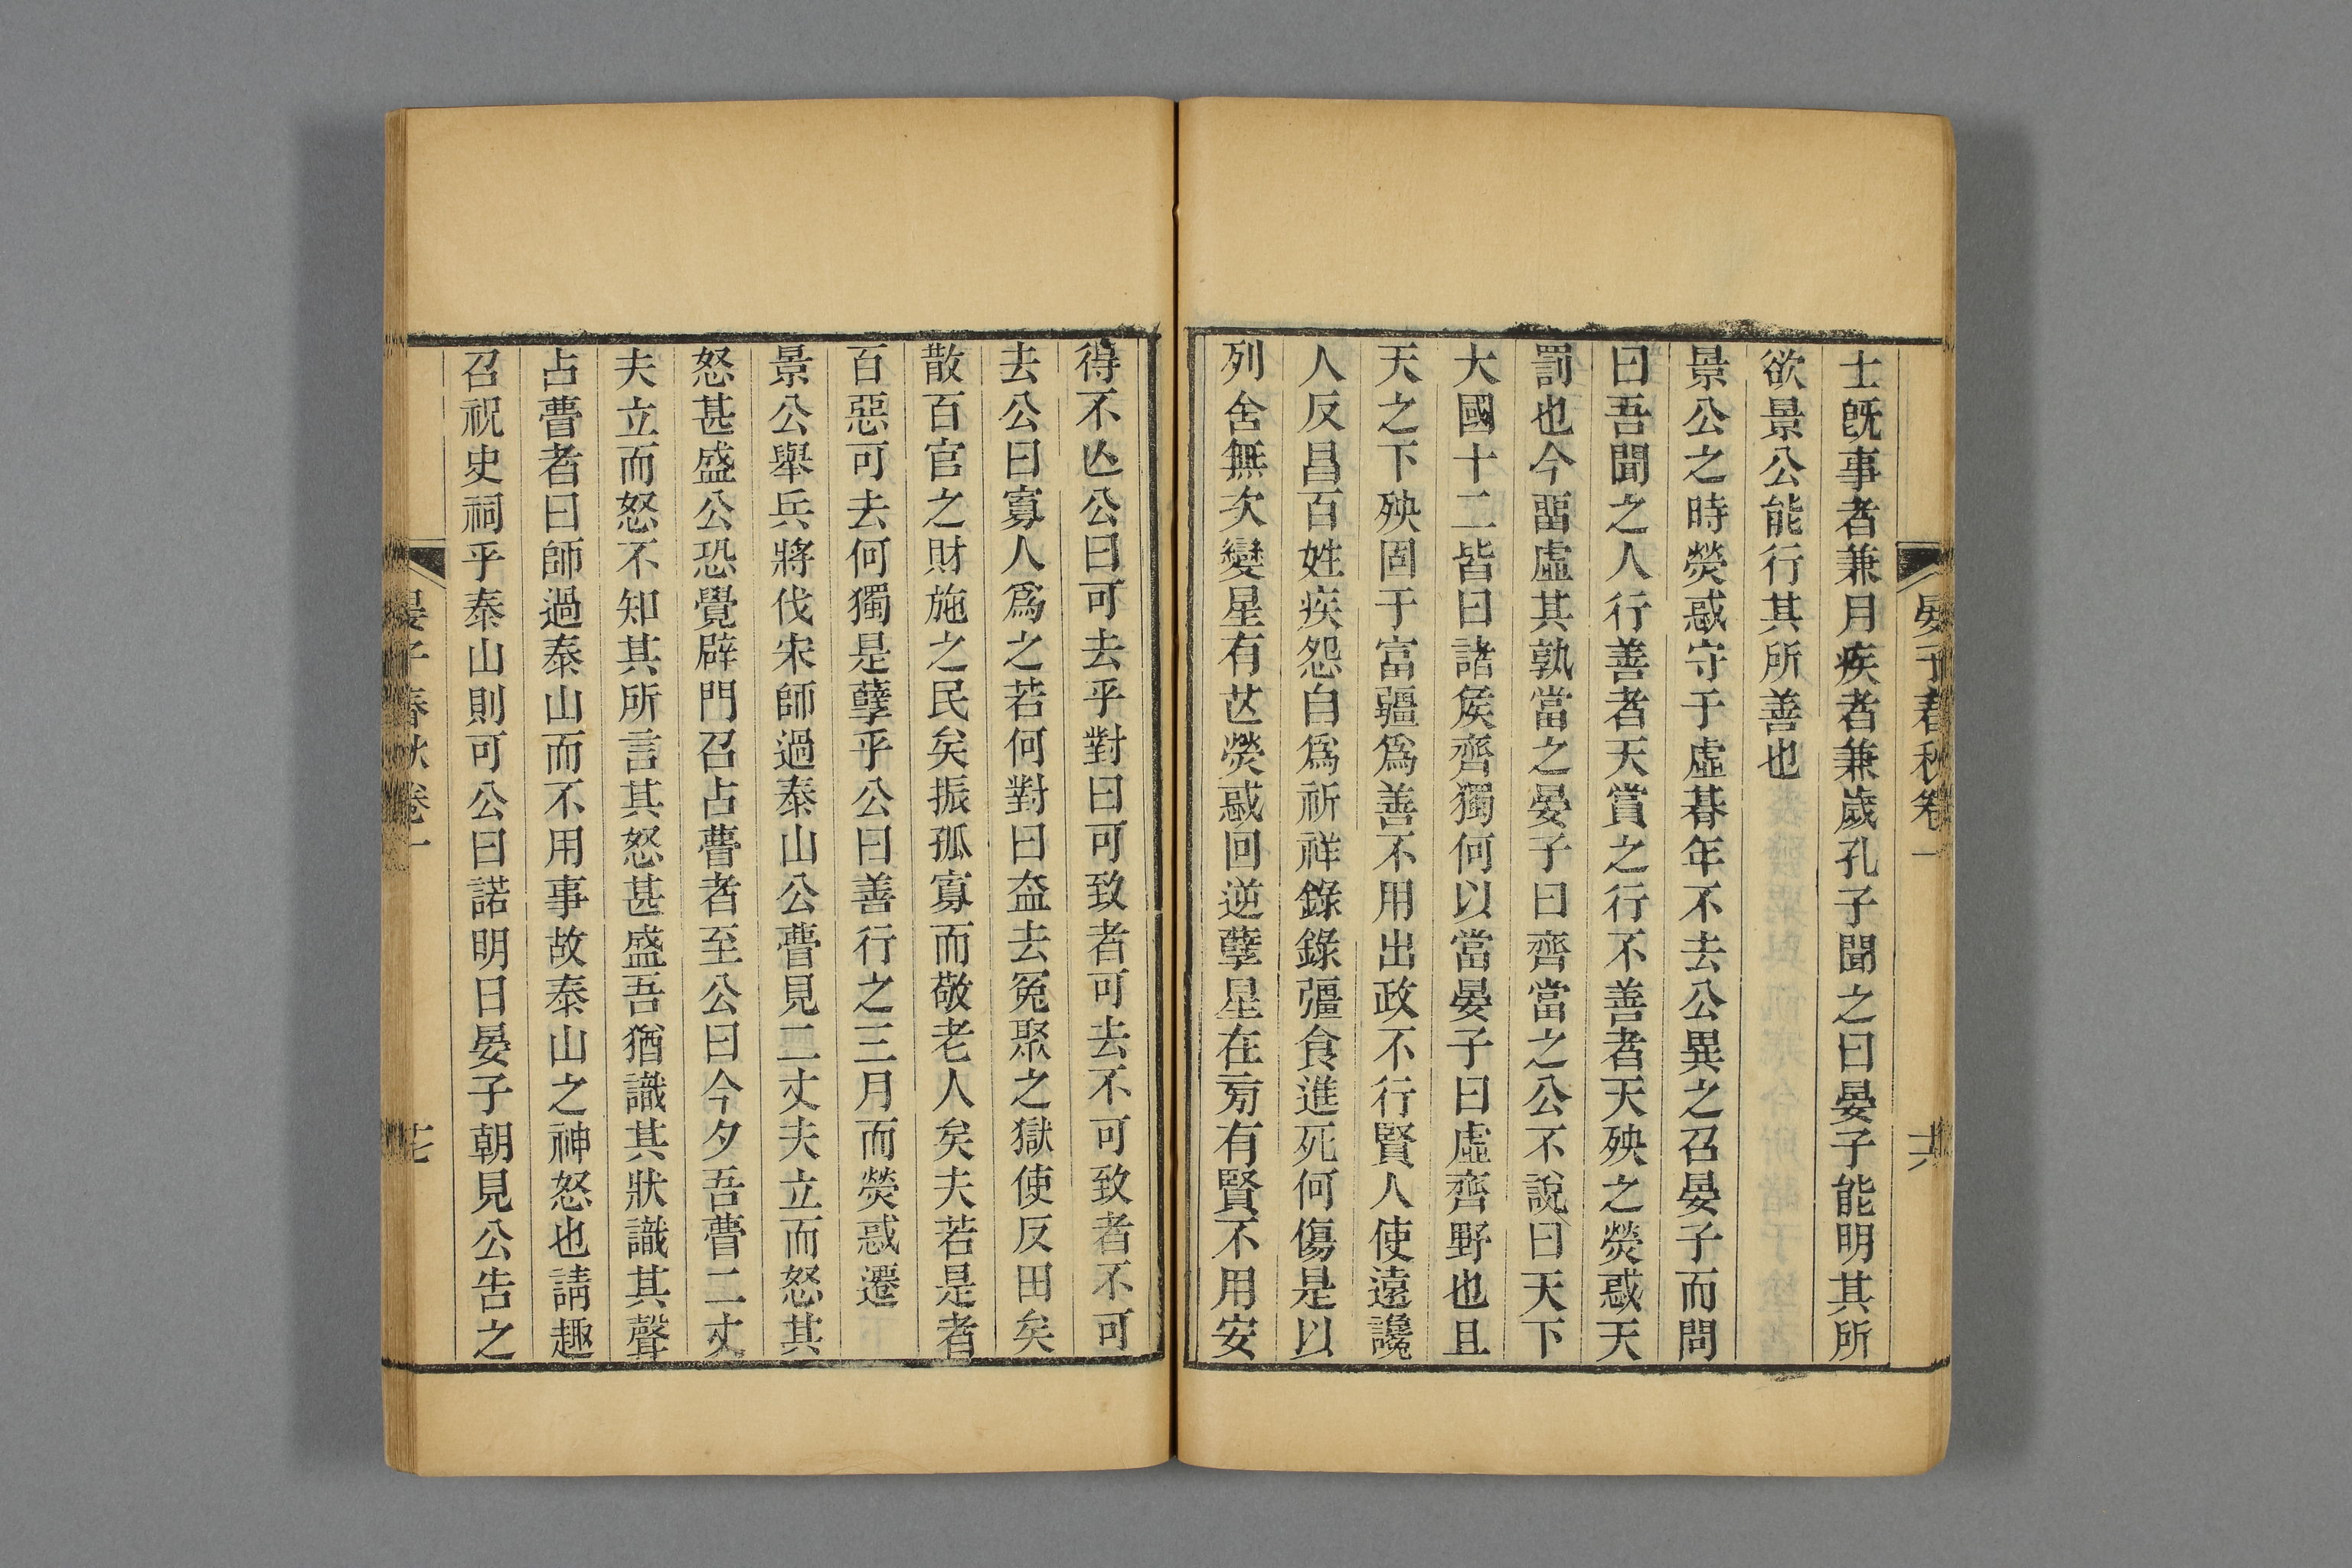 晏子春秋卷一
十六
士旣事者兼月疾者兼歲孔子聞之曰晏子能明其所
欲景公能行其所善也
景公之時熒惑守于虛朞年不去公異之召晏子而問
曰吾聞之人行善者天賞之行不善者天殃之熒惑天
罰也今畱虛其孰當之晏子曰齊當之公不說曰天下
大國十二皆曰諸矦齊獨何以當晏子曰虛齊野也且
天之下殃固于富彊爲善不用出政不行賢人使遠讒
人反昌百姓疾怨自爲祈祥錄錄彊食進死何傷是以
列舍無次變星有芒熒惑回逆孽星在㫄有賢不用安
得不亾公曰可去乎對曰可致者可去不可致者不可
去公曰寡人爲之若何對曰盇去冤聚之獄使反田矣
散百官之財施之民矣振孤寡而敬老人矣夫若是者
百惡可去何獨是孽乎公曰善行之三月而熒惑遷
景公舉兵將伐宋師過泰山公瞢見二丈夫立而怒其
怒甚盛公恐覺辟門召占瞢者至公曰今夕吾瞢二丈
夫立而怒不知其所言其怒甚盛吾猶識其狀識其聲
占瞢者曰師過泰山而不用事故泰山之神怒也請趣
召祝史祠乎泰山則可公曰諾明日晏子朝見公告之
晏子春秋卷一
十七